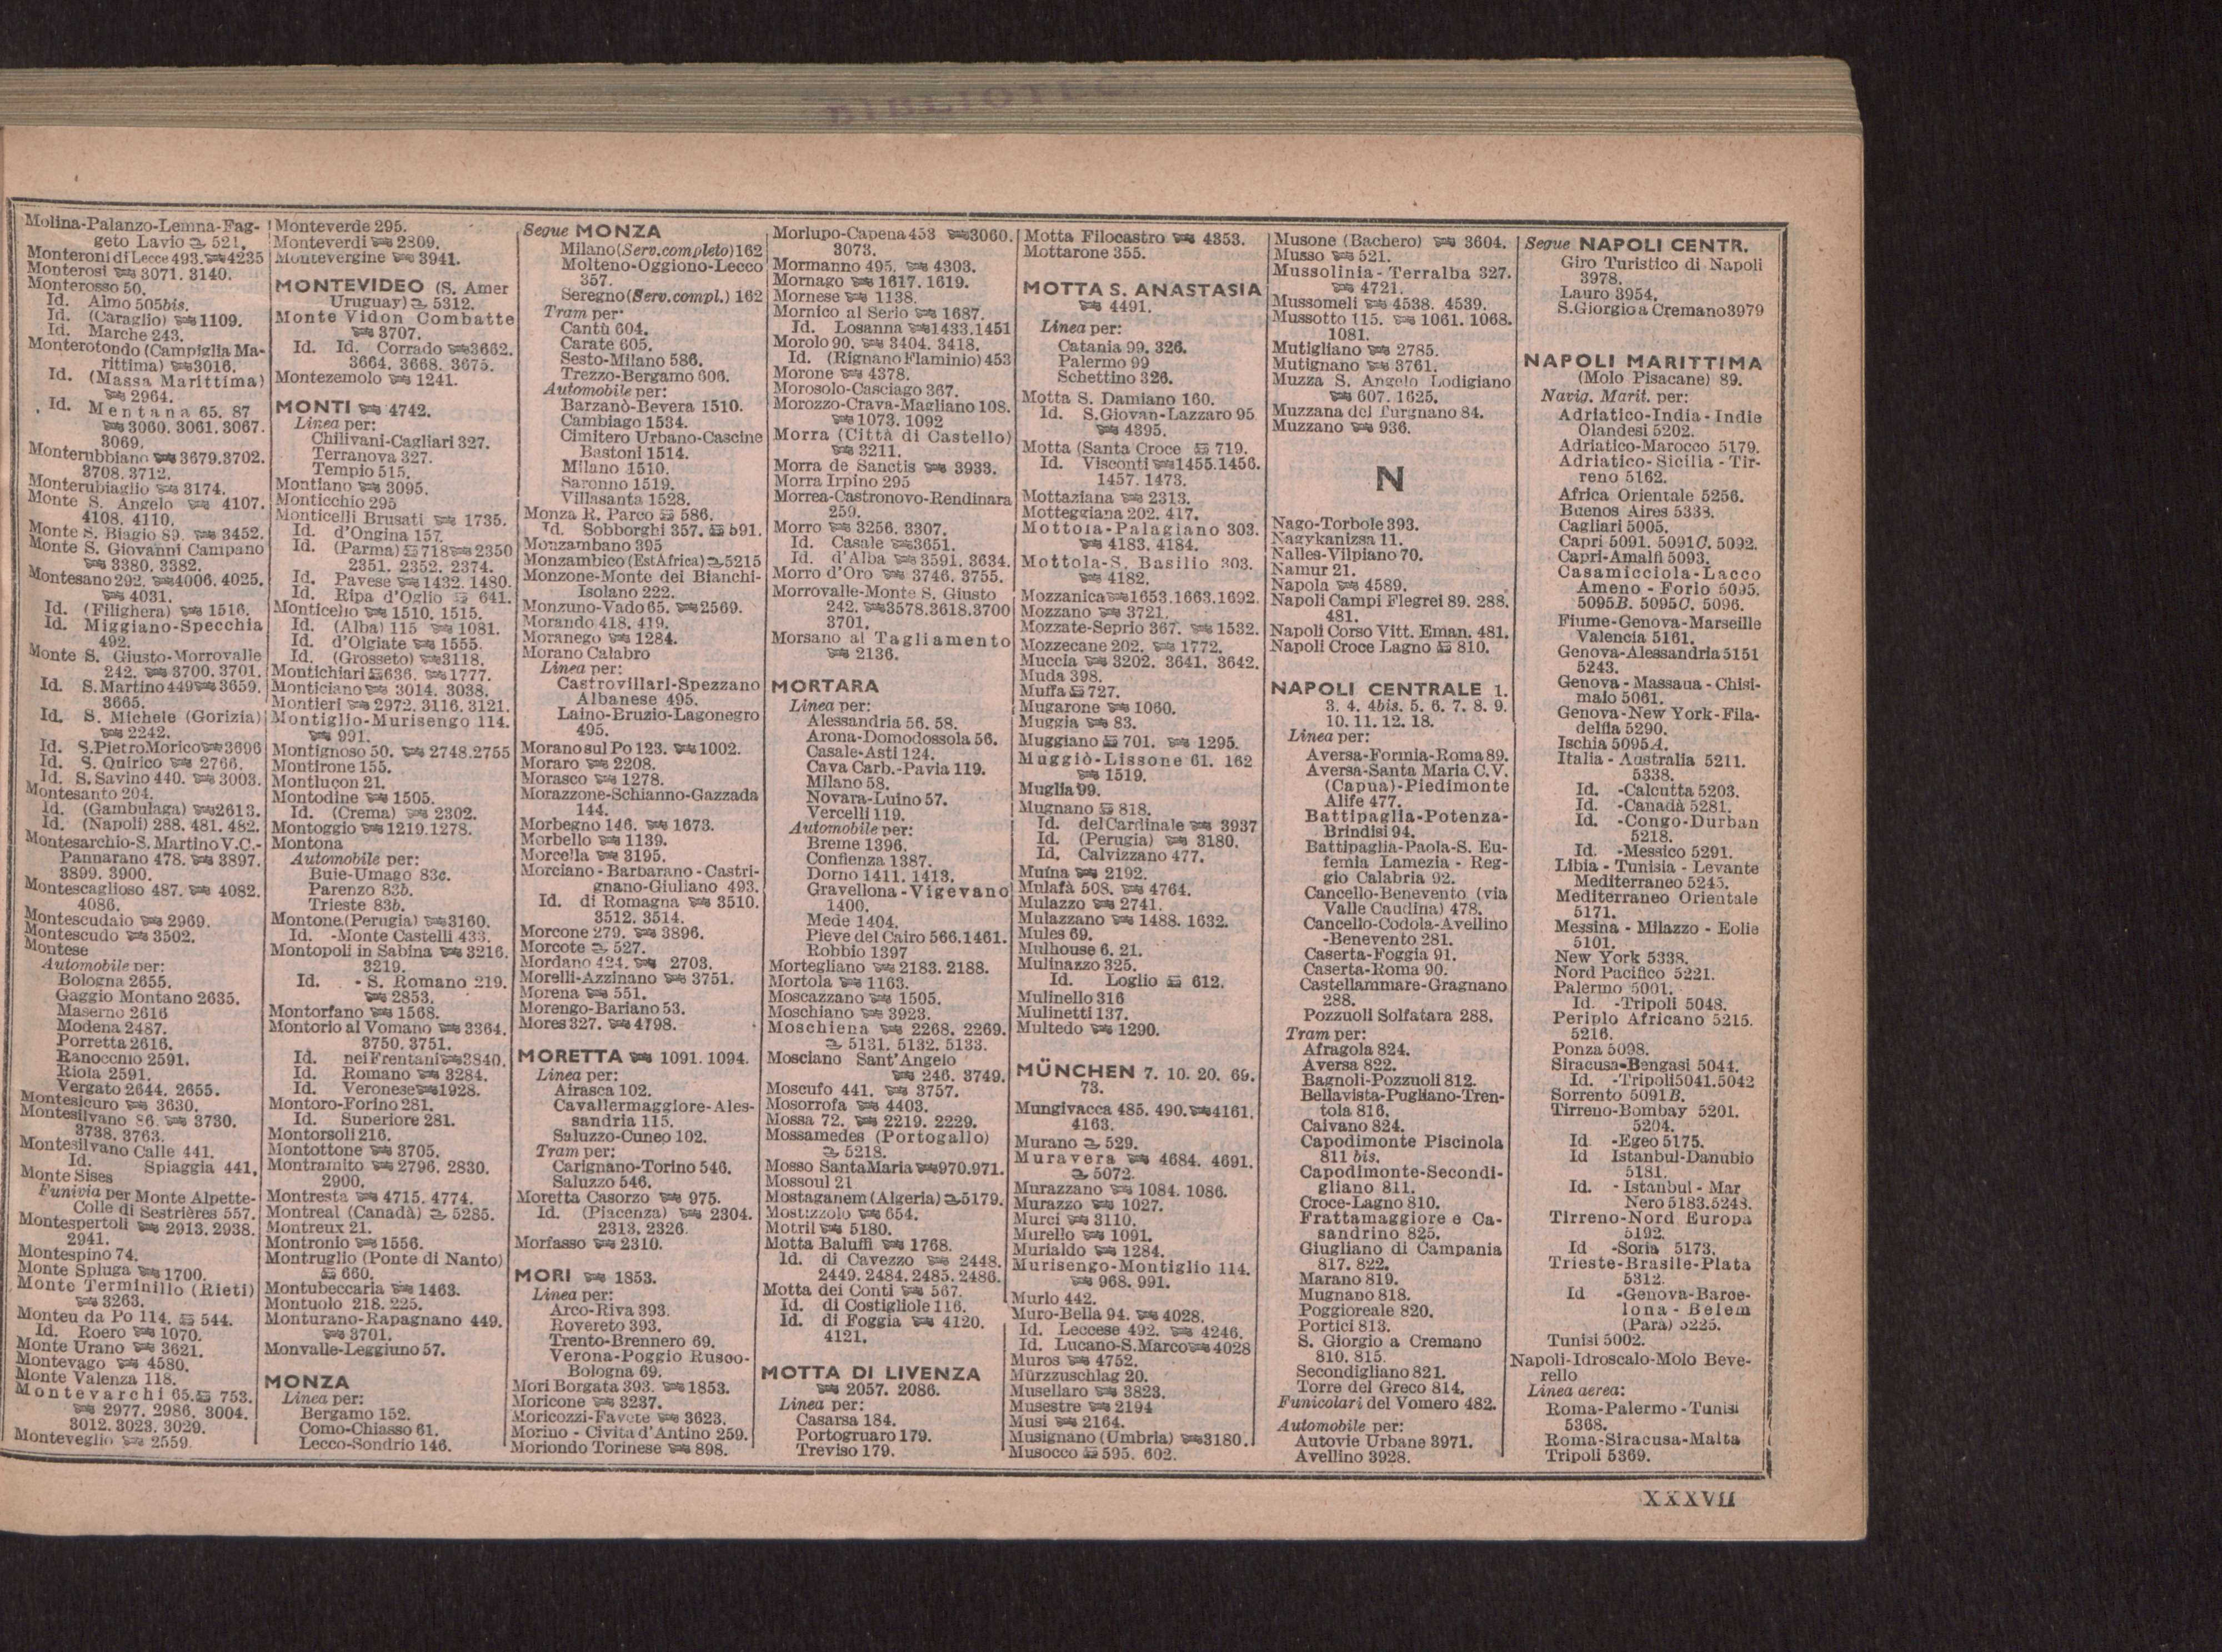 BIBLIOTEC
Molina-Palanzo-Lemna-Fag-
geto Lavio 521.
Monteroni di Lecce 493. 4235
Monterosi 3071. 3140.
Monterosso 50.
Id. Almo 505bis.
Id. (Caraglio) 1109.
Id. Marche 243.
Monterotondo (Campiglia Ma-
rittima) 3016.
Id. (Massa Marittima)
2964.
Id. Mentana 65. 87
3060. 3061. 3067.
3069.
Monterubbiano 3679.3702.
3708. 3712.
Monterubiaglio 3174.
Monte S. Angelo 4107.
4108. 4110.
Monte S. Biagio 89. 3452.
Monte S. Giovanni Campano
3380. 3382.
Montesano 292. 4006. 4025.
4031.
Id. (Filighera) 1516.
Id. Miggiano-Specchia
492.
Monte S. Giusto-Morrovalle
242. 3700. 3701.
Id. S.Martino 449 3659.
3665.
Id. S. Michele (Gorizia)
2242.
Id. S.PietroMorico 3696
Id. S. Quirico 2766.
Id. S. Savino 440. 3003.
Montesanto 204.
Id. (Gambulaga) 2613.
Id. (Napoli) 288. 481. 482.
Montesarchio-S. Martino V.C.-
Pannarano 478. 3897.
3899. 3900.
Montescaglioso 487. 4082.
4086.
Montescudaio 2969.
Montescudo 3502.
Montese
Automobile per:
Bologna 2655.
Gaggio Montano 2635.
Maserno 2616
Modena 2487.
Porretta 2616.
Ranocchio 2591.
Riola 2591.
Vergato 2644. 2655.
Montesicuro 3630.
Montesilvano 86. 3730.
3738. 3763.
Montesilvano Calle 441.
Id. Spiaggia 441.
Monte Sises
Funivia per Monte Alpette-
Colle di Sestrières 557.
Montespertoli 2913. 2938.
2941.
Montespino 74.
Monte Spluga 1700.
Monte Terminillo (Rieti)
3263.
Monteu da Po 114. 544.
Id. Roero 1070.
Monte Urano 3621.
Montevago 4580.
Monte Valenza 118.
Montevarchi 65. 753.
2977. 2986. 3004.
3012. 3023. 3029.
Monteveglio 2559.
Monteverde 295.
Monteverdi 2809.
Montevergine 3941.
MONTEVIDEO (S. Amer
Uruguay) 5312.
Monte Vidon Combatte
3707.
Id. Id. Corrado 3662.
3664. 3668. 3675.
Montezemolo 1241.
MONTI 4742.
Linea per:
Chilivani-Cagliari 327.
Terranova 327.
Tempio 515.
Montiano 3095.
Monticchio 295
Monticelli Brusati 1735.
Id. d'Ongina 157.
Id. (Parma) 718 2350
2351. 2352. 2374.
Id. Pavese 1432. 1480.
Id. Ripa d'Oglio 641.
Monticello 1510. 1515.
Id. (Alba) 115 1081.
Id. d'Olgiate 1555.
Id. (Grosseto) 3118.
Montichiari 636. 1777.
Monticiano 3014. 3038.
Montieri 2972. 3116. 3121.
Montiglio-Murisengo 114.
991.
Montignoso 50. 2748.2755
Montirone 155.
Montluçon 21.
Montodine 1505.
Id. (Crema) 2302.
Montoggio 1219.1278.
Montona
Automobile per:
Buie-Umago 83c.
Parenzo 83b.
Trieste 83b.
Montone.(Perugia) 3160.
Id. -Monte Castelli 433.
Montopoli in Sabina 3216.
3219.
Id. - S. Romano 219.
2853.
Montorfano 1568.
Montorio al Vomano 3364.
3750. 3751.
Id. nei Frentani 3840.
Id. Romano 3284.
Id. Veronese 1928.
Montoro-Forino 281.
Id. Superiore 281.
Montorsoli 216.
Montottone 3705.
Montramito 2796. 2830.
2900.
Montresta 4715. 4774.
Montreal (Canadà) 5285.
Montreux 21.
Montronio 1556.
Montruglio (Ponte di Nanto)
660.
Montubeccaria 1463.
Montuolo 218. 225.
Monturano-Rapagnano 449.
3701.
Monvalle-Leggiuno 57.
MONZA
Linea per:
Bergamo 152.
Como-Chiasso 61.
Lecco-Sondrio 146.
Segue MONZA
Milano (Serv. completo) 162
Molteno-Oggiono-Lecco
357.
Seregno (Serv. compl.) 162
Tram per:
Cantù 604.
Carate 605.
Sesto-Milano 586.
Trezzo-Bergamo 606.
Automobile per:
Barzanò-Bevera 1510.
Cambiago 1534.
Cimitero Urbano-Cascine
Bastoni 1514.
Milano 1510.
Saronno 1519.
Villasanta 1528.
Monza R. Parco 586.
Id. Sobborghi 357. 591.
Monzambano 395
Monzambico (Est Africa) 5215
Monzone-Monte dei Bianchi-
Isolano 222.
Monzuno-Vado 65. 2569.
Morando 418. 419.
Moranego 1284.
Morano Calabro
Linea per:
Castrovillari-Spezzano
Albanese 495.
Laino-Bruzio-Lagonegro
495.
Morano sul Po 123. 1002.
Moraro 2208.
Morasco 1278.
Morazzone-Schianno-Gazzada
144.
Morbegno 146. 1673.
Morbello 1139.
Morcella 3195.
Morciano-Barbarano-Castri-
gnano-Giuliano 493.
Id. di Romagna 3510.
3512. 3514.
Morcone 279. 3896.
Morcote 527.
Mordano 424. 2703.
Morelli-Azzinano 3751.
Morena 551.
Morengo-Bariano 53.
Mores 327. 4798.
MORETTA 1091. 1094.
Linea per:
Airasca 102.
Cavallermaggiore-Ales-
sandria 115.
Saluzzo-Cuneo 102.
Tram per:
Carignano-Torino 546.
Saluzzo 546.
Moretta Casorzo 975.
Id. (Piacenza) 2304.
2313. 2326.
Morfasso 2310.
MORI 1853.
Linea per:
Arco-Riva 393.
Rovereto 393.
Trento-Brennero 69.
Verona-Poggio Rusco-
Bologna 69.
Mori Borgata 393. 1853.
Moricone 3237.
Moricozzi-Favete 3623.
Morino - Civita d'Antino 259.
Moriondo Torinese 898.
Morlupo-Capena 453 3060.
3073.
Mormanno 495. 4303.
Mornago 1617. 1619.
Mornese 1138.
Mornico al Serio 1687.
Id. Losanna 1433.1451
Morolo 90. 3404. 3418.
Id. (Rignano Flaminio) 453
Morone 4378.
Morosolo-Casciago 367.
Morozzo-Crava-Magliano 108.
1073. 1092
Morra (Città di Castello)
3211.
Morra de Sanctis 3933.
Morra Irpino 295
Morrea-Castronovo-Rendinara
259.
Morro 3256. 3307.
Id. Casale 3651.
Id. d'Alba 3591. 3634.
Morro d'Oro 3746. 3755.
Morrovalle-Monte S. Giusto
242. 3578.3618.3700
3701.
Morsano al Tagliamento
2136.
MORTARA
Linea per:
Alessandria 56. 58.
Arona-Domodossola 56.
Casale-Asti 124.
Cava Carb.-Pavia 119.
Milano 58.
Novara-Luino 57.
Vercelli 119.
Automobile per:
Breme 1396.
Confienza 1387.
Dorno 1411. 1413.
Gravellona-Vigevano
1400.
Mede 1404.
Pieve del Cairo 566.1461.
Robbio 1397
Mortegliano 2183. 2188.
Mortola 1163.
Moscazzano 1505.
Moschiano 3923.
Moschiena 2268. 2269.
5131. 5132. 5133.
Mosciano Sant'Angelo
246. 3749.
Moscufo 441. 3757.
Mosorrofa 4403.
Mossa 72. 2219. 2229.
Mossamedes (Portogallo)
5218.
Mosso Santa Maria 970.971.
Mossoul 21
Mostaganem (Algeria) 5179.
Mostizzolo 654.
Motril 5180.
Motta Baluffi 1768.
Id. di Cavezzo 2448.
2449. 2484. 2485. 2486.
Motta dei Conti 567.
Id. di Costigliole 116.
Id. di Foggia 4120.
4121.
MOTTA DI LIVENZA
2057. 2086.
Linea per:
Casarsa 184.
Portogruaro 179.
Treviso 179.
Motta Filocastro 4353.
Mottarone 355.
MOTTA S. ANASTASIA
4491.
Linea per:
Catania 99. 326.
Palermo 99
Schettino 326.
Motta S. Damiano 160.
Id. S.Giovan-Lazzaro 95
4395.
Motta (Santa Croce 719.
Id. Visconti 1455.1456.
1457. 1473.
Mottaziana 2313.
Motteggiana 202. 417.
Mottola-Palagiano 303.
4183. 4184.
Mottola-S. Basilio 303.
4182.
Mozzanica 1653.1663.1692.
Mozzano 3721.
Mozzate-Seprio 367. 1532.
Mozzecane 202. 1772.
Muccia 3202. 3641. 3642.
Muda 398.
Muffa 727.
Mugarone 1060.
Muggia 83.
Muggiano 701. 1295.
Muggiò-Lissone 61. 162
1519.
Muglia 99.
Mugnano 818.
Id. del Cardinale 3937
Id. (Perugia) 3180.
Id. Calvizzano 477.
Muina 2192.
Mulafà 508. 4764.
Mulazzo 2741.
Mulazzano 1488. 1632.
Mules 69.
Mulhouse 6. 21.
Mulinazzo 325.
Id. Loglio 612.
Mulinello 316
Mulinetti 137.
Multedo 1290.
MÜNCHEN 7. 10. 20. 69.
73.
Mungivacca 485. 490. 4161.
4163.
Murano 529.
Muravera 4684. 4691.
5072.
Murazzano 1084. 1086.
Murazzo 1027.
Murci 3110.
Murello 1091.
Murialdo 1284.
Murisengo-Montiglio 114.
968. 991.
Murlo 442.
Muro-Bella 94. 4028.
Id. Leccese 492. 4246.
Id. Lucano-S.Marco 4028
Muros 4752.
Mürzzuschlag 20.
Musellaro 3823.
Musestre 2194
Musi 2164.
Musignano (Umbria) 3180.
Musocco 595. 602.
Musone (Bachero) 3604.
Musso 521.
Mussolinia-Terralba 327.
4721.
Mussomeli 4538. 4539.
Mussotto 115. 1061. 1068.
1081.
Mutigliano 2785.
Mutignano 3761.
Muzza S. Angelo Lodigiano
607. 1625.
Muzzana del Turgnano 84.
Muzzano 936.
N
Nago-Torbole 393.
Nagykanizsa 11.
Nalles-Vilpiano 70.
Namur 21.
Napola 4589.
Napoli Campi Flegrei 89. 288.
481.
Napoli Corso Vitt. Eman. 481.
Napoli Croce Lagno 810.
NAPOLI CENTRALE 1.
3. 4. 4bis. 5. 6. 7. 8. 9.
10. 11. 12. 18.
Linea per:
Aversa-Formia-Roma 89.
Aversa-Santa Maria C.V.
(Capua)-Piedimonte
Alife 477.
Battipaglia-Potenza-
Brindisi 94.
Battipaglia-Paola-S. Eu-
femia Lamezia - Reg-
gio Calabria 92.
Cancello-Benevento (via
Valle Caudina) 478.
Cancello-Codola-Avellino
-Benevento 281.
Caserta-Foggia 91.
Caserta-Roma 90.
Castellammare-Gragnano
288.
Pozzuoli Solfatara 288.
Tram per:
Afragola 824.
Aversa 822.
Bagnoli-Pozzuoli 812.
Bellavista-Pugliano-Tren-
tola 816.
Caivano 824.
Capodimonte Piscinola
811 bis.
Capodimonte-Secondi-
gliano 811.
Croce-Lagno 810.
Frattamaggiore e Ca-
sandrino 825.
Giugliano di Campania
817. 822.
Marano 819.
Mugnano 818.
Poggioreale 820.
Portici 813.
S. Giorgio a Cremano
810. 815.
Secondigliano 821.
Torre del Greco 814.
Funicolari del Vomero 482.
Automobile per:
Autovie Urbane 3971.
Avellino 3928.
Segue NAPOLI CENTR.
Giro Turistico di Napoli
3978.
Lauro 3954.
S.Giorgio a Cremano 3979
NAPOLI MARITTIMA
(Molo Pisacane) 89.
Navig. Marit. per:
Adriatico-India-Indie
Olandesi 5202.
Adriatico-Marocco 5179.
Adriatico-Sicilia-Tir-
reno 5162.
Africa Orientale 5256.
Buenos Aires 5338.
Cagliari 5005.
Capri 5091. 5091C. 5092.
Capri-Amalfi 5093.
Casamicciola-Lacco
Ameno - Forio 5095.
5095B. 5095C. 5096.
Fiume-Genova-Marseille
Valencia 5161.
Genova-Alessandria 5151
5243.
Genova - Massaua - Chisi-
maio 5061.
Genova-New York-Fila-
delfia 5290.
Ischia 5095A.
Italia - Australia 5211.
5338.
Id. -Calcutta 5203.
Id. -Canadà 5281.
Id. -Congo-Durban
5218.
Id. -Messico 5291.
Libia - Tunisia - Levante
Mediterraneo 5245.
Mediterraneo Orientale
5171.
Messina - Milazzo - Eolie
5101.
New York 5338.
Nord Pacifico 5221.
Palermo 5001.
Id. -Tripoli 5048.
Periplo Africano 5215.
5216.
Ponza 5098.
Siracusa-Bengasi 5044.
Id. -Tripoli 5041.5042
Sorrento 5091B.
Tirreno-Bombay 5201.
5204.
Id -Egeo 5175.
Id Istanbul-Danubio
5181.
Id. - Istanbul - Mar
Nero 5183.5248.
Tirreno-Nord Europa
5192.
Id -Soria 5173.
Trieste-Brasile-Plata
5312.
Id -Genova-Barce-
lona - Belem
(Parà) 5225.
Tunisi 5002.
Napoli-Idroscalo-Molo Beve-
rello
Linea aerea:
Roma-Palermo-Tunisi
5368.
Roma-Siracusa-Malta
Tripoli 5369.
XXXVII